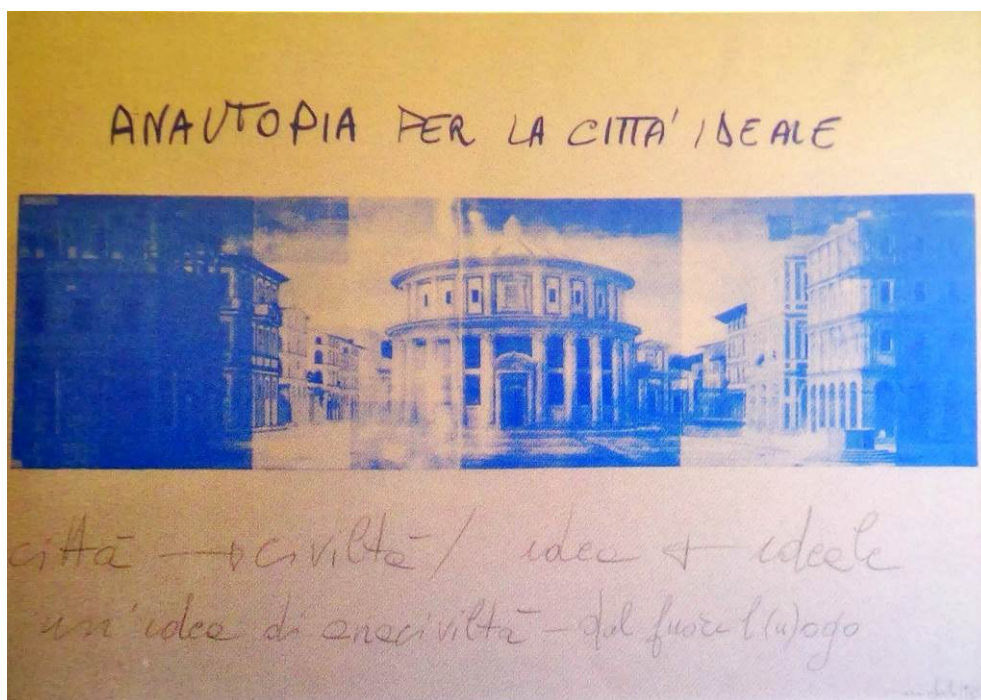 ANAUTOPIA PER LA CITTA' IDEALE
città → civiltà / idea → ideale
un'idea di anaciviltà - dal fuore l(u)ogo